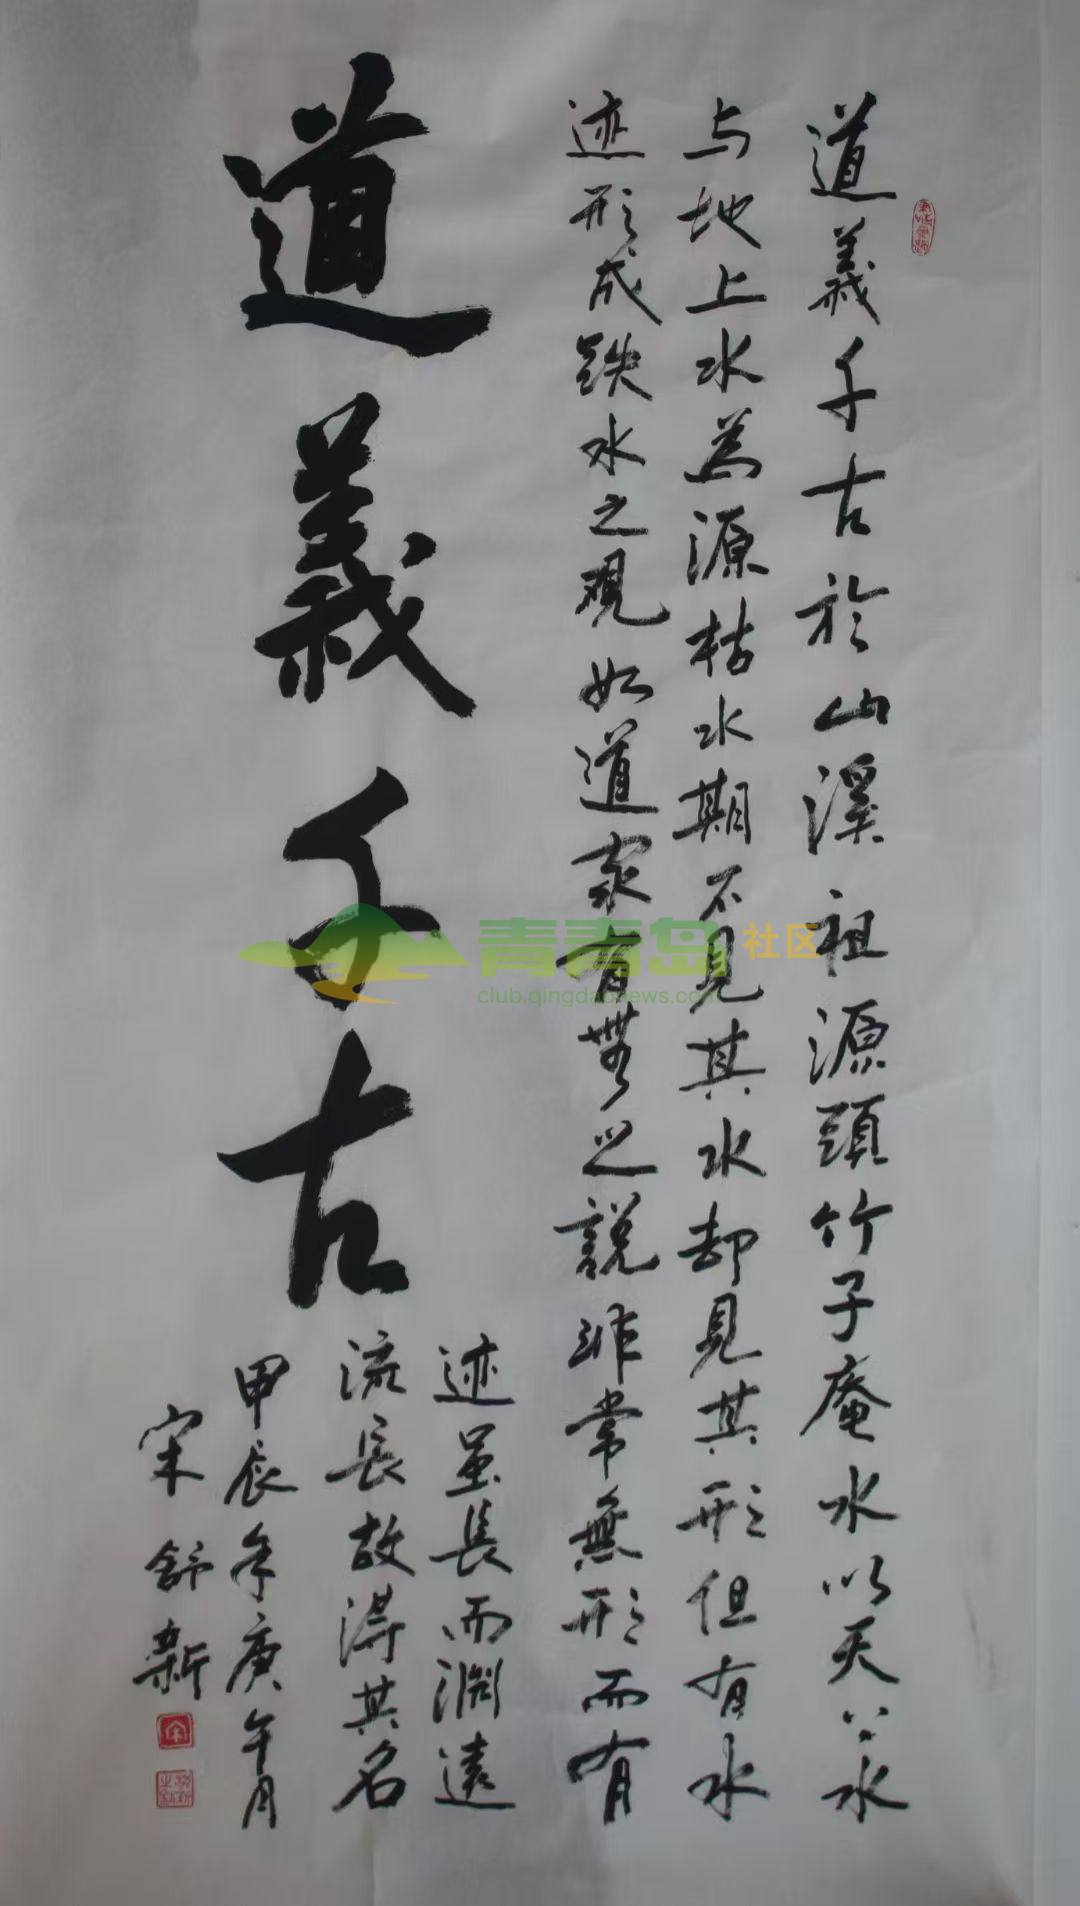 道義千古於山溪祖源頭竹子庵水以天下水
与地上水為源枯水期不見其水却見其形但有水
迹形成跌水之觀如道家有無之説非常無形而有
迹虽長而淵遠
流長故得其名
道義千古
甲辰年庚午月
宋舒新
宋
青青岛社区
club.qingdaonews.com